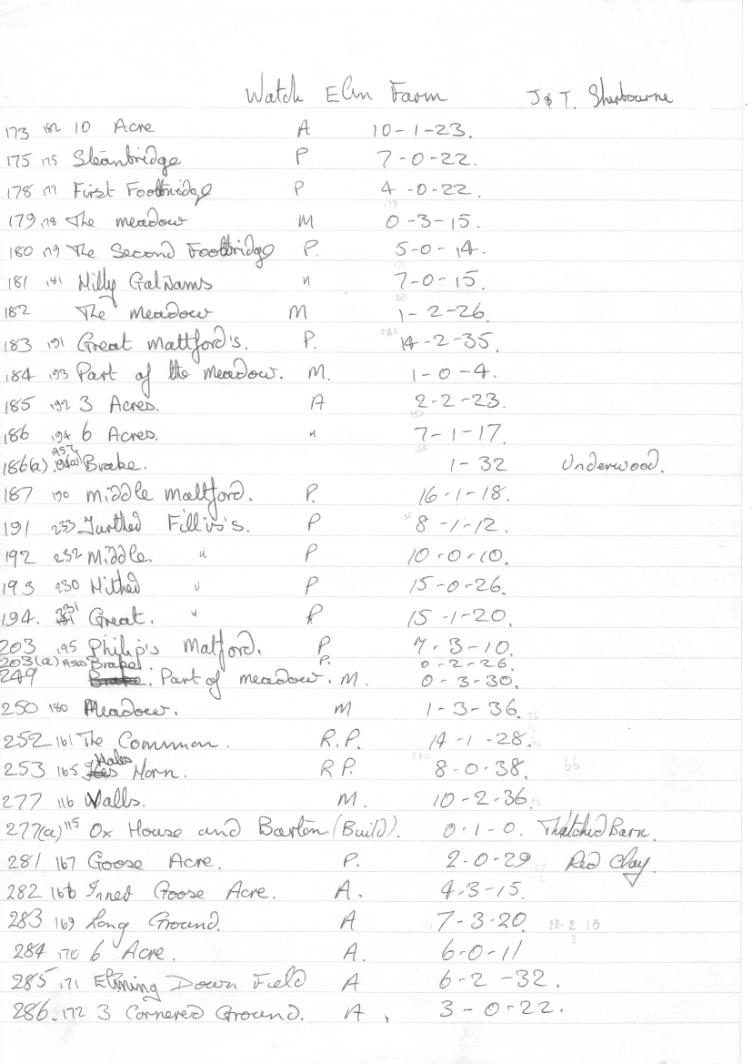 Watch Elm Farm J & T. Sherbourne
173 182 10 Acre A 10-1-23.
175 175 Sleanbridge P 7-0-22.
178 177 First Footbridge P 4-0-22.
179 178 The meadow M 0-3-15.
180 179 The Second Footbridge P. 5-0-14.
181 181 Milly Galnams " 7-0-15.
182 The meadow M 1-2-26.
183 191 Great Mattford's. P. 14-2-35.
184 193 Part of the meadow. M. 1-0-4.
185 192 3 Acres. A 2-2-23.
186 194 6 Acres. " 7-1-17.
186(a) Brake. 1-32 Underwood.
187 190 Middle Maltford. P. 16-1-18.
191 233 Furthed Fillis's. P 8-1-12.
192 232 Middle. " P 10-0-10.
193 230 Hithed " P 15-0-26.
194. 231 Great. " P 15-1-20.
203 195 Philip's Malford. P. 7-3-10.
203(a) Brake. P. 0-2-26.
249 Part of meadow. M. 0-3-30.
250 180 Meadow. M 1-3-36.
252 161 The Common. R.P. 14-1-28.
253 165 Hales Horn. R P. 8-0-38.
277 116 Walls. M. 10-2-36.
277(a) 115 Ox House and Barton (Build). 0-1-0. Thatched Barn.
281 167 Goose Acre. P. 2-0-29 Red Clay.
282 166 Inned Goose Acre. A. 4-3-15.
283 169 Long Ground. A 7-3-20. 28-2 15
284 170 6 Acre. A. 6-0-11
285 171 Elming Down Field A 6-2-32.
286. 172 3 Cornered Ground. A. 3-0-22.